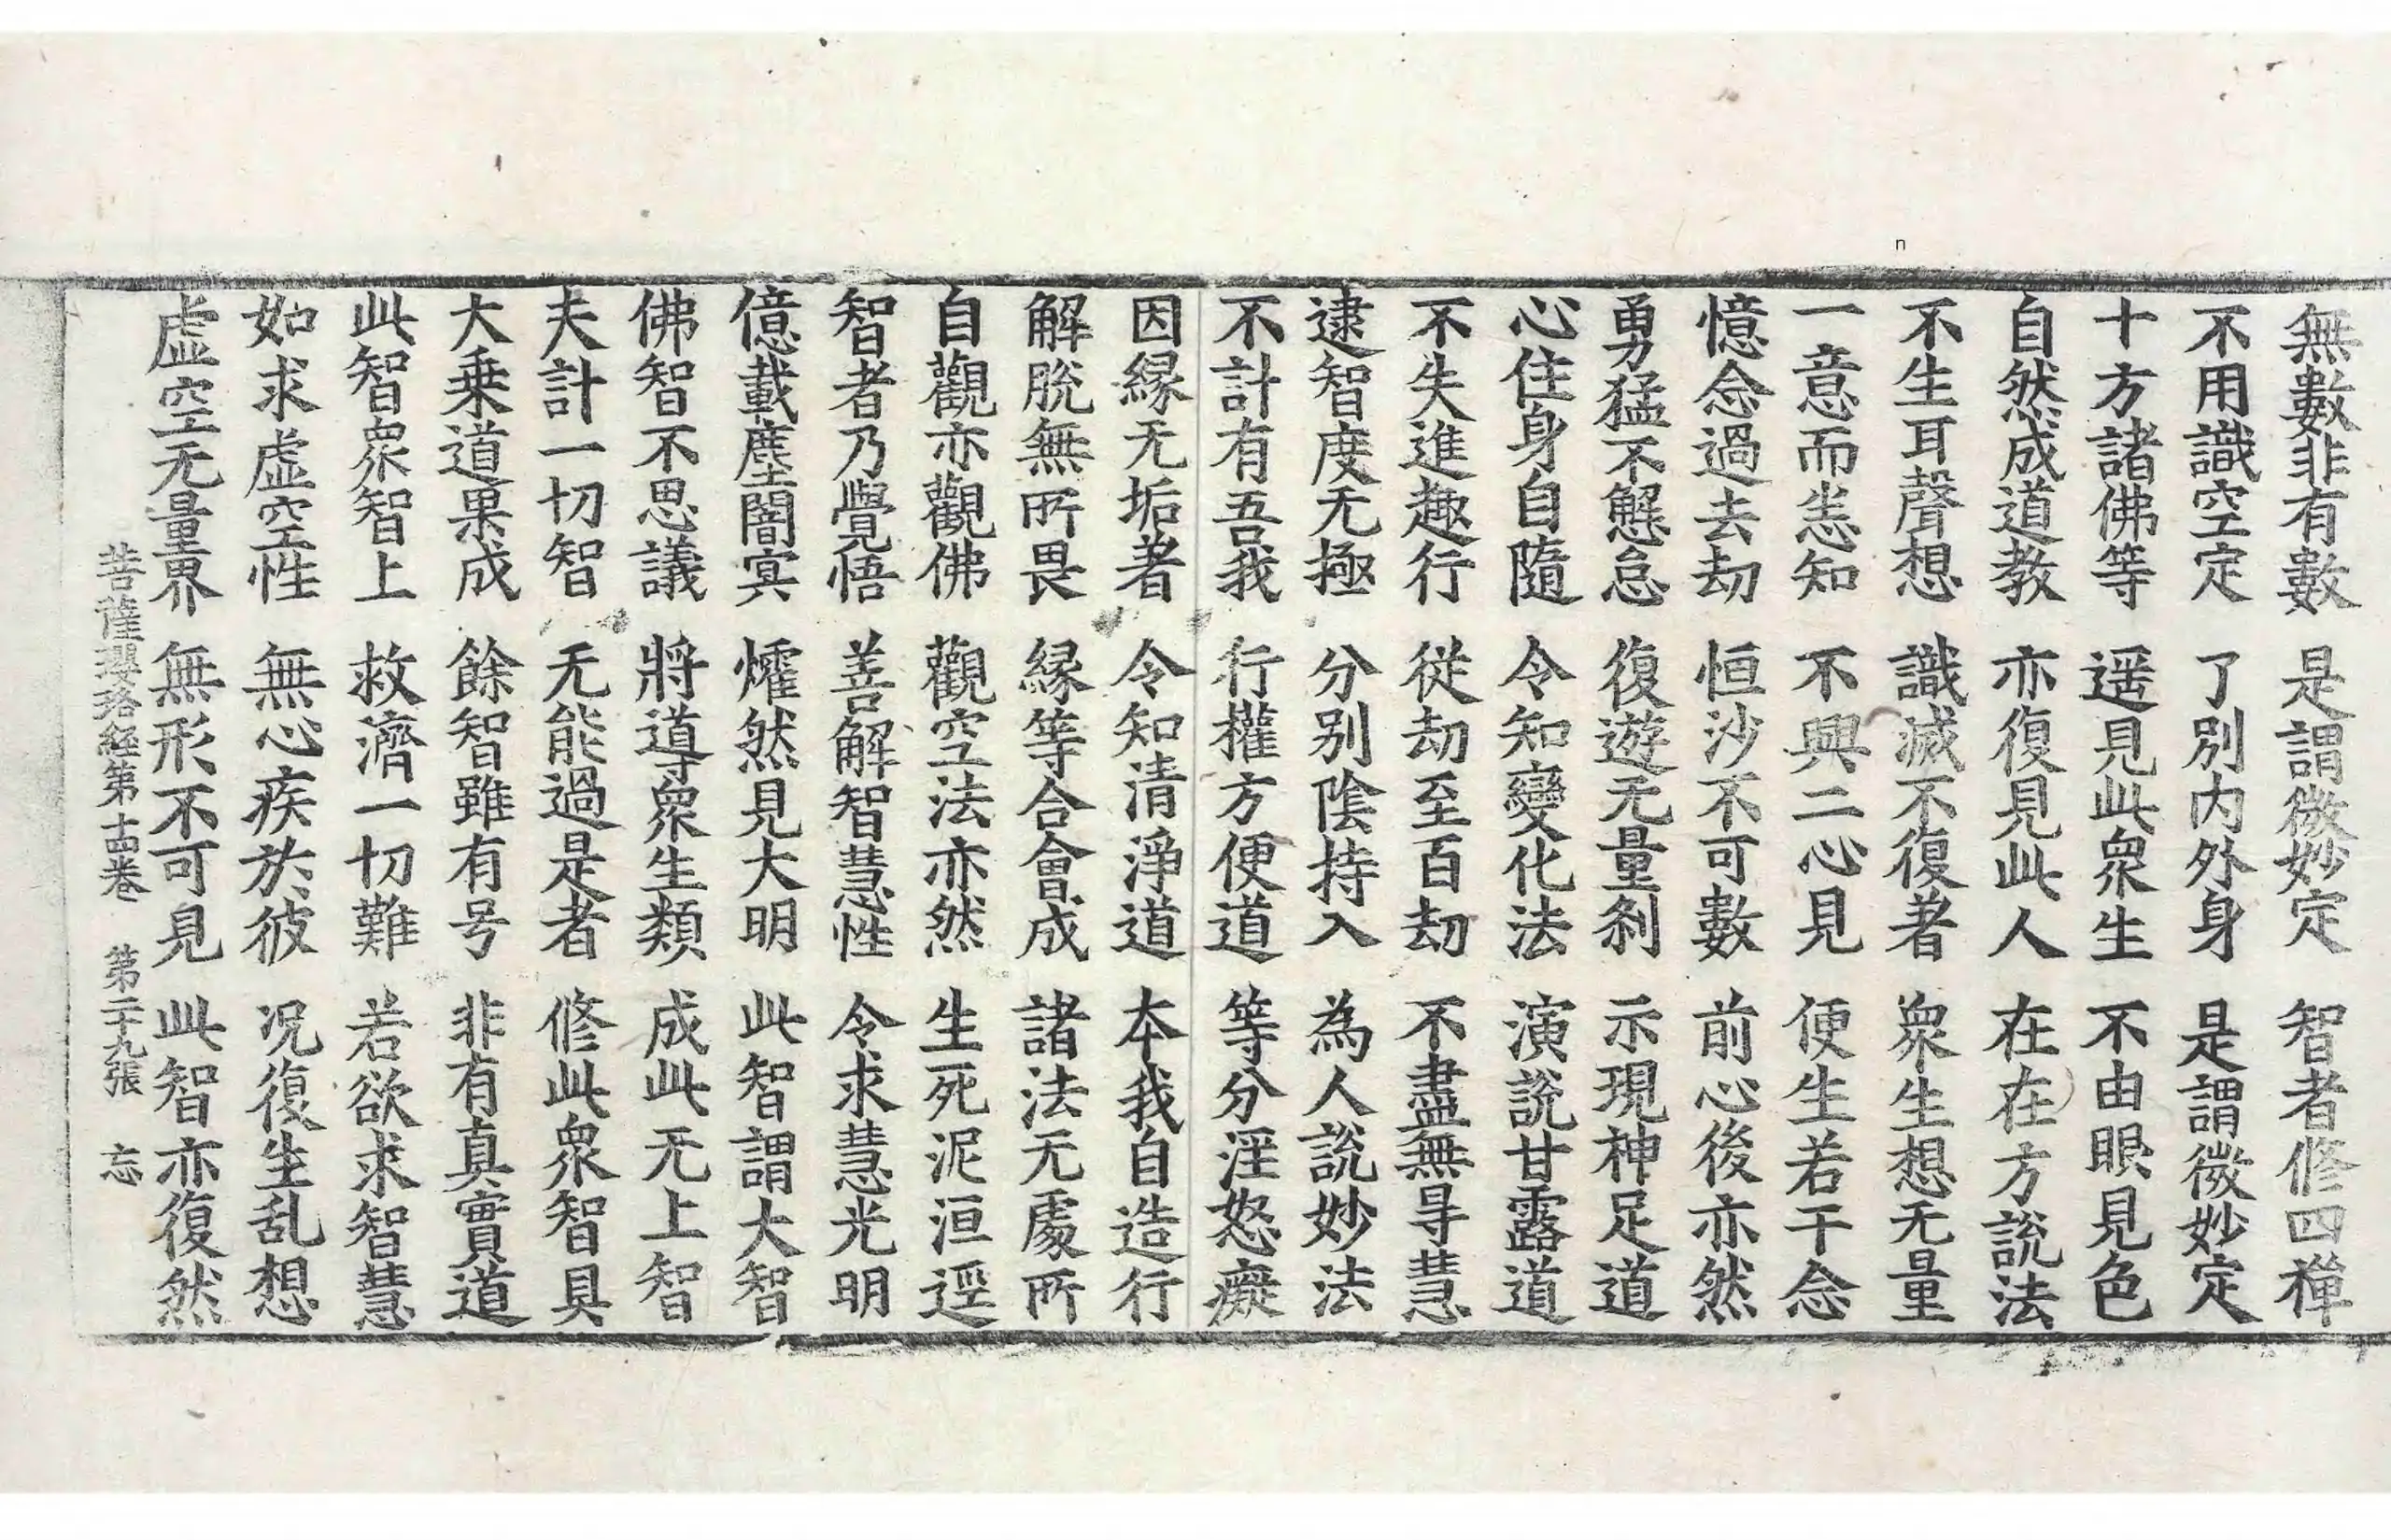 無數非有數　是謂微妙定　智者修四禪
不用識空定　了別内外身　是謂微妙定
十方諸佛等　遥見此衆生　不由眼見色
自然成道教　亦復見此人　在在方說法
不生耳聲想　識滅不復著　衆生想无量
一意而恙知　不興二心見　便生若干念
憶念過去劫　恒沙不可數　前心後亦然
勇猛不懈怠　復遊无量刹　示現神足道
心住身自隨　令知變化法　演說甘露道
不失進趣行　從劫至百劫　不盡無㝵慧
逮智度无極　分别陰持入　為人說妙法
不計有吾我　行權方便道　等分淫怒癡
因緣无垢著　令知清淨道　本我自造行
解脫無所畏　緣等合會成　諸法无處所
自觀亦觀佛　觀空法亦然　生死泥洹逕
智者乃覺悟　善解智慧性　令求慧光明
億載塵闇冥　燿然見大明　此智謂大智
佛智不思議　將導衆生類　成此无上智
夫計一切智　无能過是者　修此衆智具
大乗道果成　餘智雖有号　非有真實道
此智衆智上　救濟一切難　若欲求智慧
如求虛空性　無心疾於彼　况復生乱想
虛空无量界　無形不可見　此智亦復然
菩薩瓔珞経第十四卷　第二十九張　忘
n